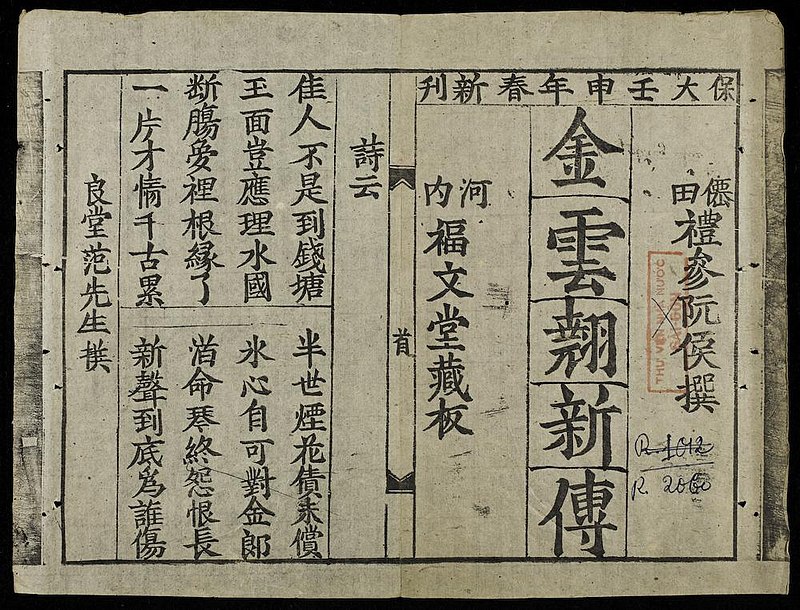 保大壬申年春新刊
僊田禮參阮侯撰
R. 1012
R. 2060
金雲翹新傳
河內福文堂藏板
首
詩云
佳人不是到錢塘 半世煙花債未償
玉面豈應理水國 氷心自可對金郎
断膓夢裡根縁了 命琴終怨恨長
一片才情千古累 新聲到底為誰傷
良堂范先生撰